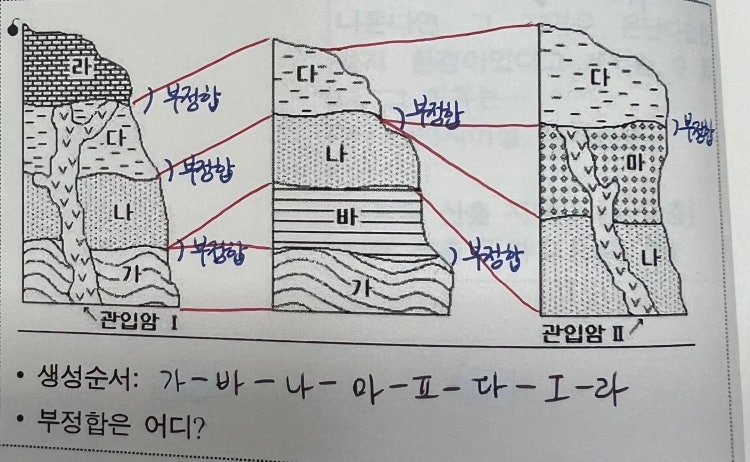 라
다
나
가
관입암 Ⅰ
부정합
부정합
부정합
다
나
바
가
부정합
부정합
다
마
나
관입암 Ⅱ
부정합
• 생성순서: 가-바-나-마-Ⅱ-다-Ⅰ-라
• 부정합은 어디?